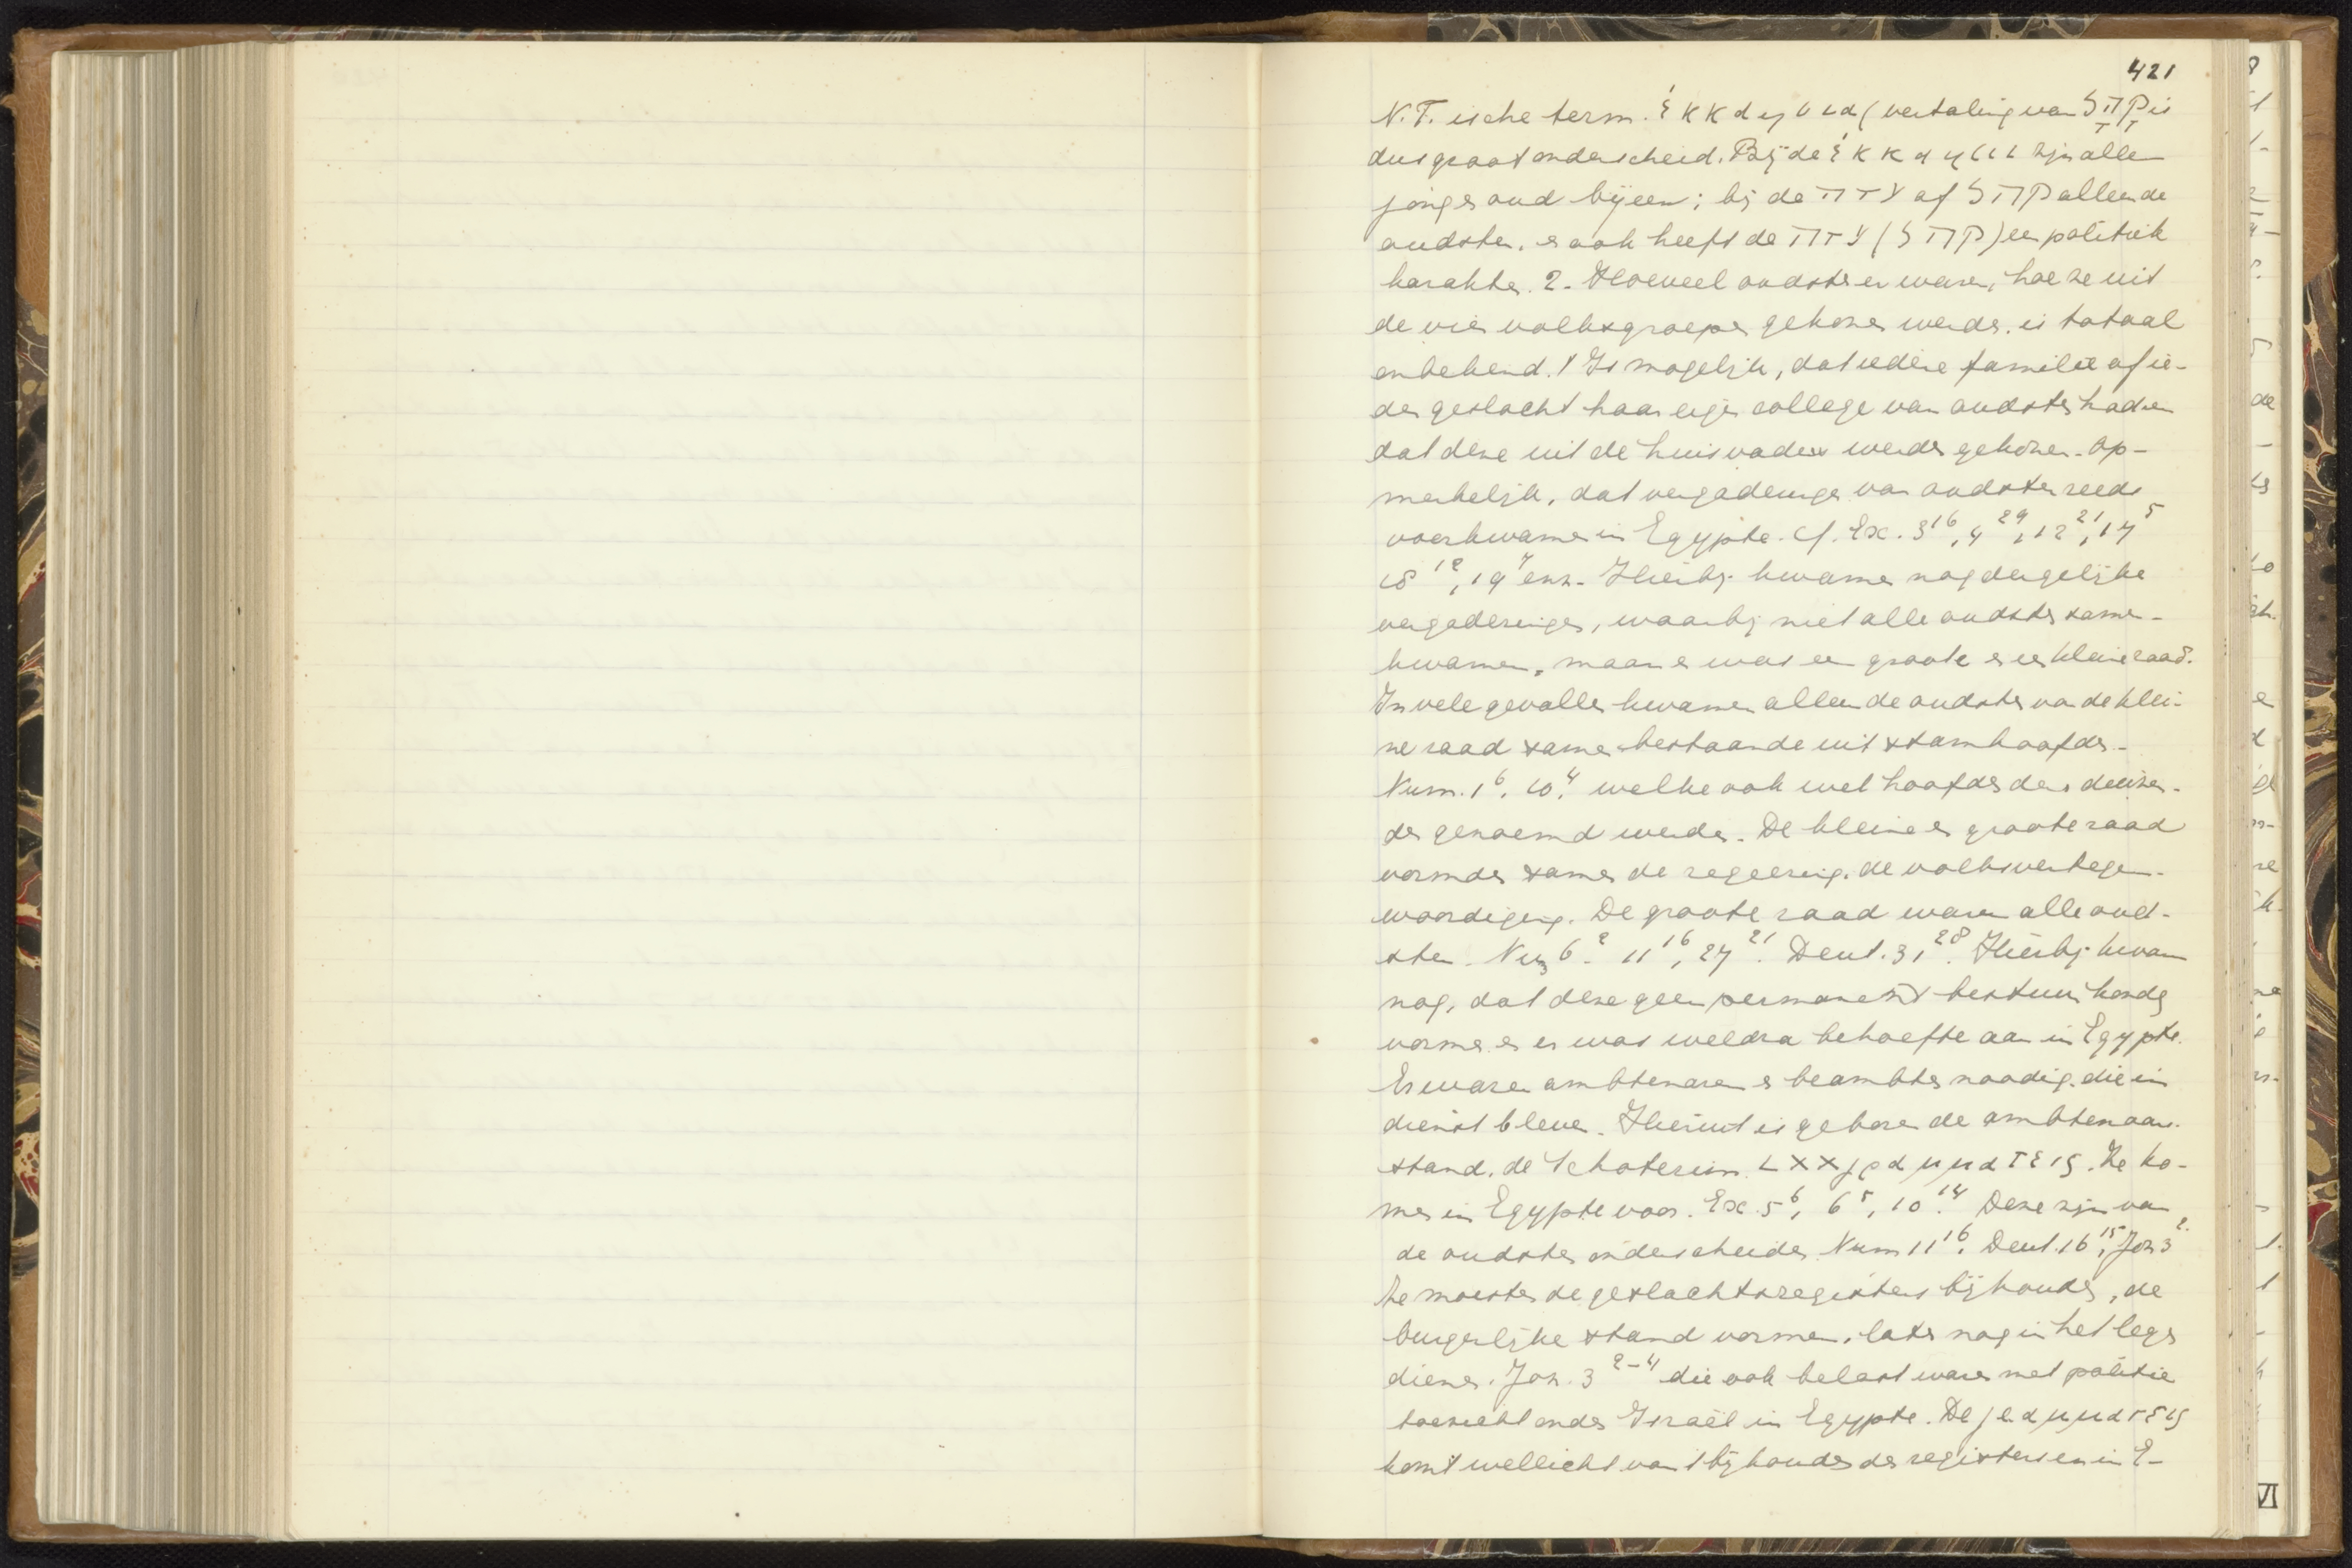 421
N.T. ische term. ἐκκλησια (vertaling van קָהָל is
dus groot onderscheid. Bij de ἐκκλησια zijn allen
jong en oud bijeen; bij de עדה of קהל alleen de
oudsten. en ook heeft de עדה (קהל) een politiek
karakter. 2. Hoeveel oudsten er waren, hoe ze uit
de vier volksgroepen gekozen werden, is totaal
onbekend. 't Is mogelijk, dat iedere familie of ie-
der geslacht haar eigen college van oudsten had en
dat deze uit de huisvaders werden gekozen. Op-
merkelijk, dat vergaderingen van oudsten reeds
voorkwamen in Egypte. Cf. Ex. 3¹⁶, 4²⁹, 12²¹, 17⁵
18¹², 19⁷ enz. Hierbij kwamen nog dergelijke
vergaderingen, waarbij niet alle oudsten samen-
kwamen, maar er was een groote en een kleine raad.
In vele gevallen kwamen alleen de oudsten van de klei-
ne raad samen bestaande uit stamhoofden.
Num. 1⁶, 10⁴ welke ook wel hoofden der duizen-
den genoemd werden. De kleine en groote raad
vormden samen de regeering, de volksvertegen-
woordiging. De groote raad waren alle oud-
sten. Num 6² 11¹⁶, 27²¹. Deut. 31²⁸. Hierbij kwam
nog, dat deze geen permanent bestuur konden
vormen en er was weldra behoefte aan in Egypte.
Er waren ambtenaren en beambten noodig, die in
dienst bleven. Hieruit is geboren de ambtenaar-
stand, de Schoterim LXX γραμματεις. Ze ko-
men in Egypte voor. Ex. 5⁶, 6⁵, 10¹⁴ Deze zijn van
de oudsten onderscheiden Num 11¹⁶, Deut. 16¹⁵, Joz 3²
Ze moesten de geslachtsregisters bijhouden, de
burgerlijke stand vormen, later nog in het leger
dienen. Joz. 3²⁻⁴ die ook belast waren met politie
toezicht onder Israël in Egypte. De γραμματεις
komt wellicht van 't bijhouden der registers en in E-
VI